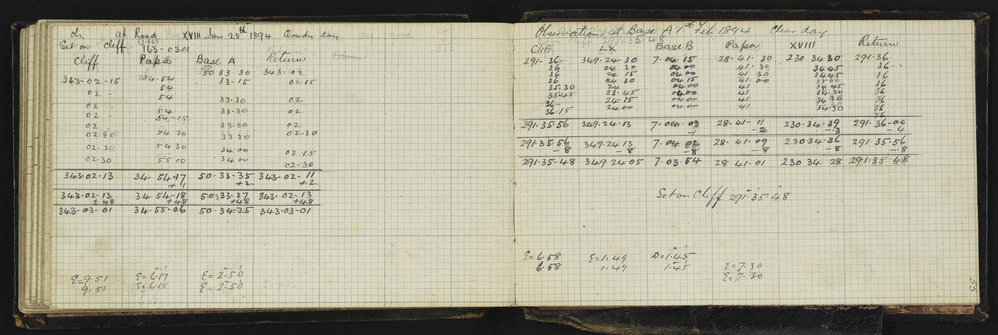 Obs. at Road XVIII Jan 25th 1894 Cloudy day
Set on Cliff 163-03-01
Cliff Papa Base A Return
343-02-15 134-54 50 33-30 343-02
54 33-15 02.15
02 54
02 33.30 02
02 54 33.30 02
02 54-15
02 33.30 02
02.30 54 30 33.30 02-30
02.30 54 30 34.00 02.15
02.30 55 00 34.00 02-30
343.02.13 34-54-17 50-33.35 343-02-11
+1 +2 +2
343-02-13 34 54-18 50.33.37 343.02-13
+48 +48 +48 +48
343-03-01 34-55-06 50 34.25 343.03-01
E=9.51 E=6.17 E=2.50
9.51 E=6.18 E=2.50
Observations at Base A 1st Feb 1894 Clear day
Cliff LX Base B Papa XVIII Return
291-36- 349.24.30 7.04.15 28.41.30 230 34.30 291.36
36 24 30 04.00 41.30 34.45 36
36 24 15 04.00 41 30 34.45 36
36 24 30 04.15 41.00 36
35.30 24 04.00 41 34.45 36
35.45 23.45 04.00 41 36
36- 24.15 04.00 41 34.30 36
36.15 24.00 04.00 41 34.30 36
36
291.35.56 349.24-13 7-04.03 28-41-11 230-34.39 291.36-06
-1 -2 -3 -4
291-35-56 349.24-13 7-04-02 28-41-09 230 34-36 291-35-56
-8 -8 -8 -8 -8 -8
291-35-48 349 24 05 7-03-54 28 41-01 230 34 28 291.35.48
Set on Cliff 291-35-48
E=6.58 E=1.49 D=1.45
6.58 1.49 1.45 E=7.30
E=7.30
55